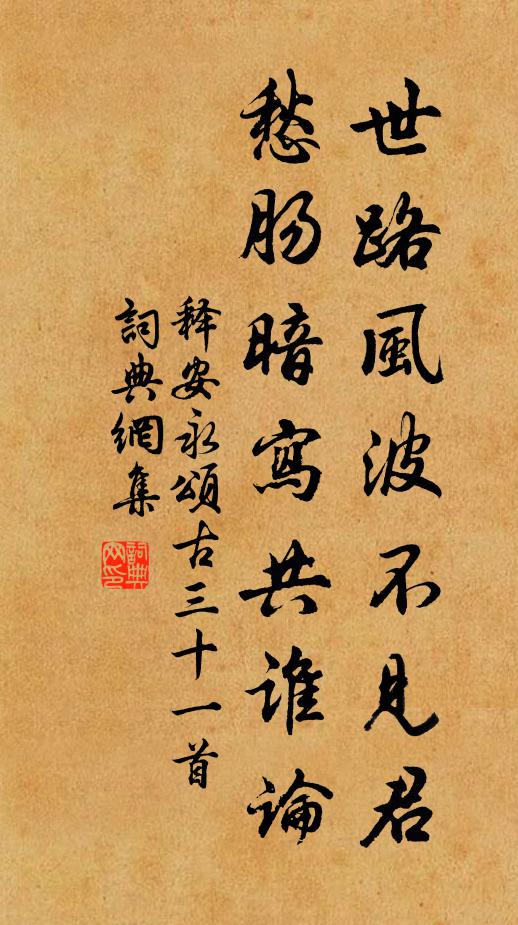 世路風波不見君
愁肠暗寫共誰論
释安永頌古三十一首
詞典網集
詞典网印